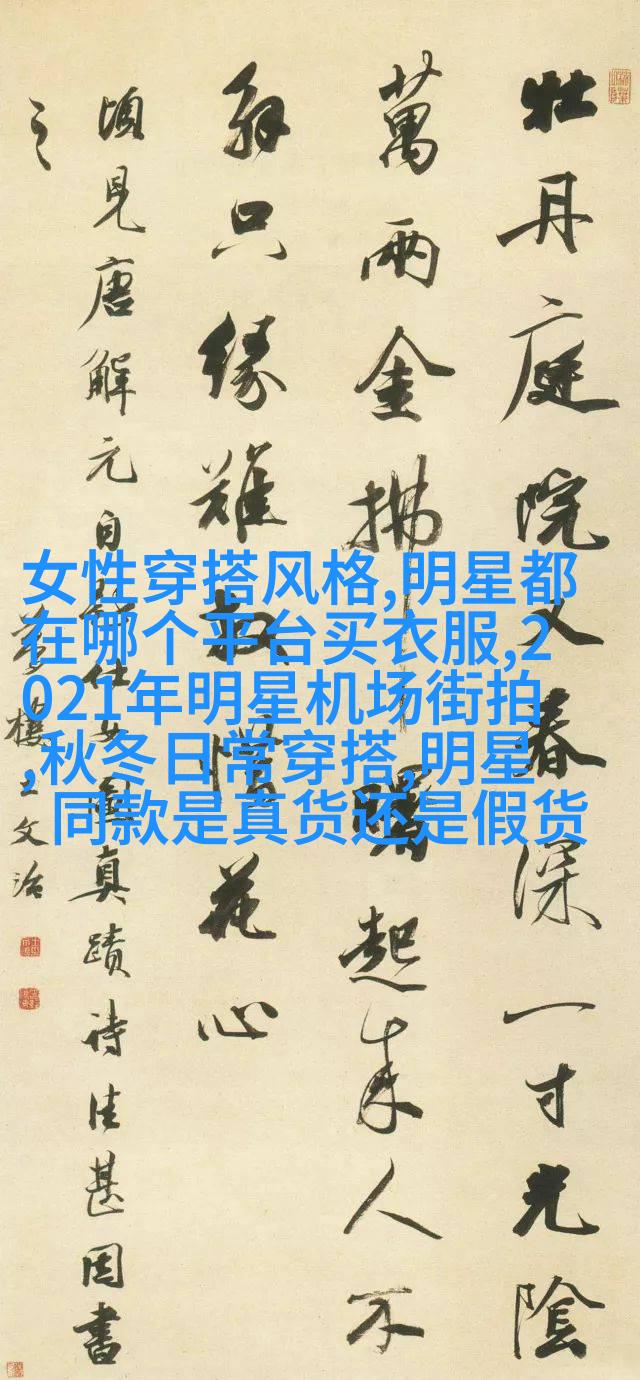 牡丹庭院又春深一寸光陰
萬兩金拂曙起來人不
解只緣難放惜花心
頃見唐解元自題仕女圖真蹟詩佳甚因書
之
夢樓王文治
女性穿搭风格,明星都
在哪个平台买衣服,2
021年明星机场街拍
,秋冬日常穿搭,明星
同款是真货还是假货